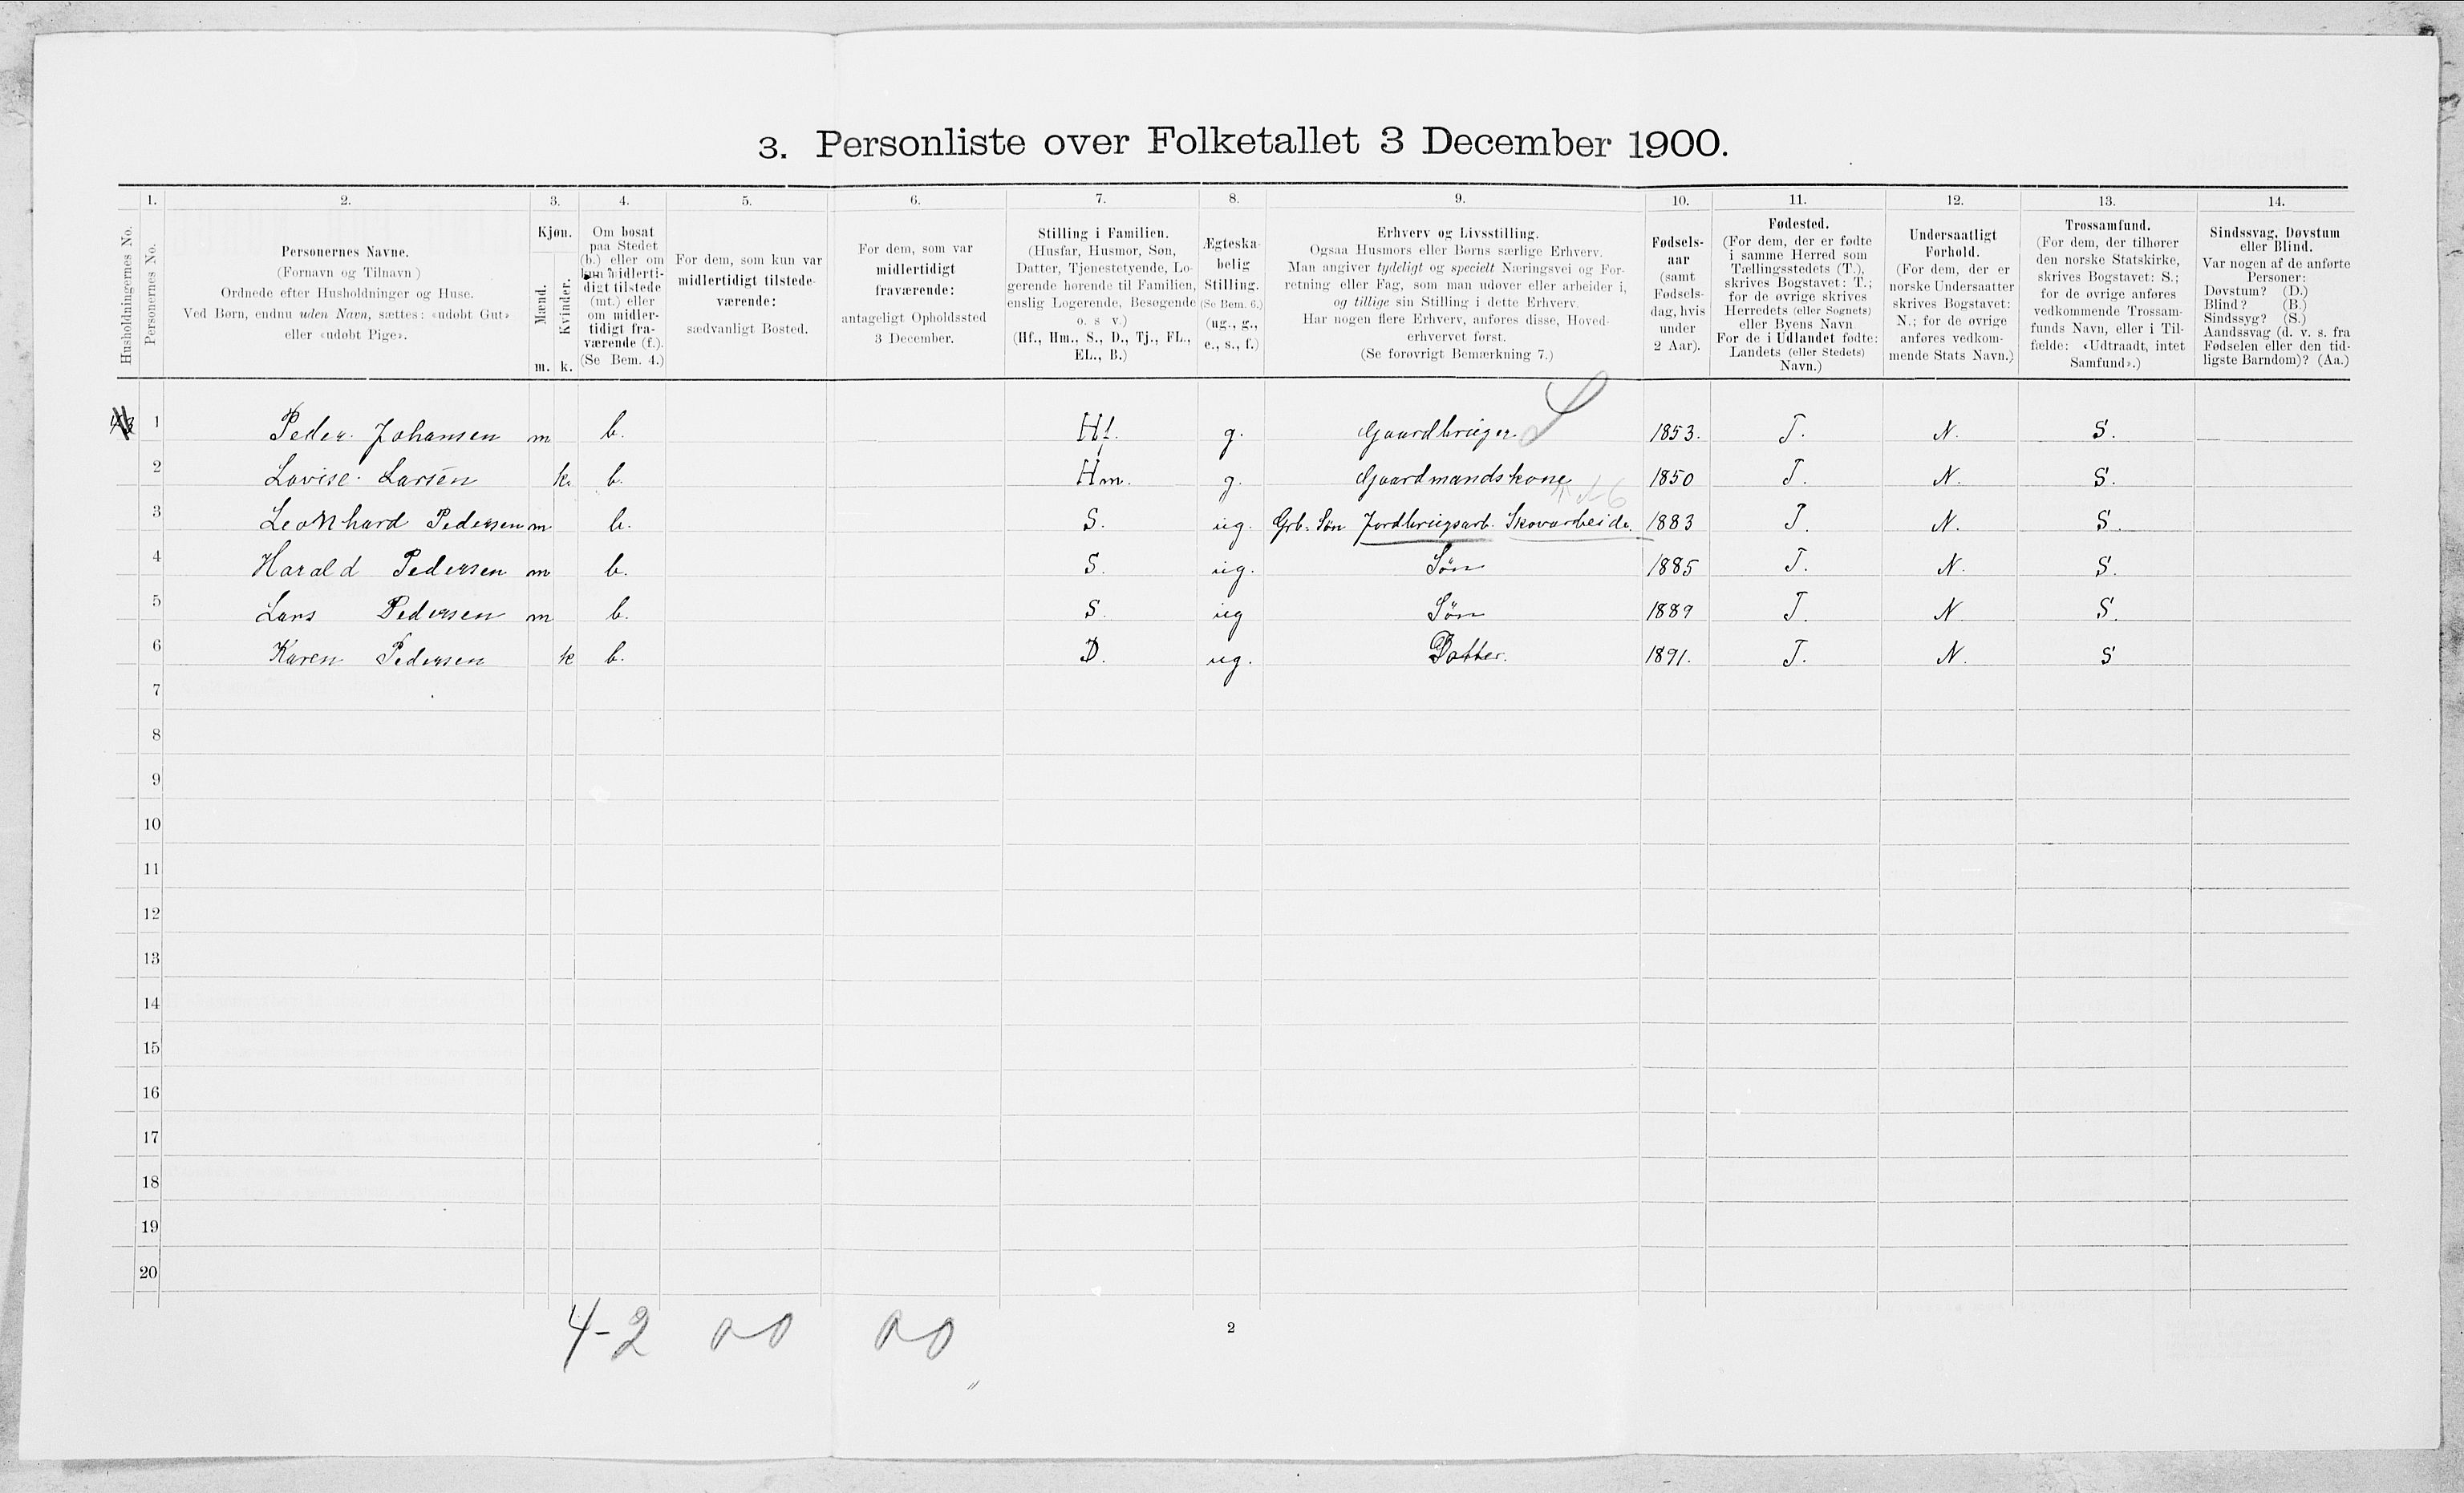 3. Personliste over Folketallet 3 December 1900.
1. 2. 3. 4. 5. 6. 7. 8. 9. 10. 11. 12. 13. 14.
Husholdningernes No.
Personernes No.
Personernes Navne.
(Fornavn og Tilnavn.)
Ordnede efter Husholdninger og Huse.
Ved Børn, endnu uden Navn, sættes: «udøbt Gut»
eller «udøbt Pige».
Kjøn.
Mænd.
Kvinder.
m. k.
Om bosat
paa Stedet
(b.) eller om
kun midlerti-
digt tilstede
(mt.) eller
om midler-
tidigt fra-
værende (f.).
(Se Bem. 4.)
For dem, som kun var
midlertidigt tilstede-
værende:
sædvanligt Bosted.
For dem, som var
midlertidigt
fraværende:
antageligt Opholdssted
3 December.
Stilling i Familien.
(Husfar, Husmor, Søn,
Datter, Tjenestetyende, Lo-
gerende hørende til Familien,
enslig Logerende, Besøgende
o. s v.)
(Hf., Hm., S., D., Tj., FL.,
EL., B.)
Ægteska-
belig
Stilling.
(Se Bem. 6.)
(ug., g.,
e., s., f.)
Erhverv og Livsstilling.
Ogsaa Husmors eller Børns særlige Erhverv.
Man angiver tydeligt og specielt Næringsvei og For-
retning eller Fag, som man udøver eller arbeider i,
og tillige sin Stilling i dette Erhverv.
Har nogen flere Erhverv, anføres disse, Hoved-
erhvervet først.
(Se forøvrigt Bemærkning 7.)
Fødsels-
aar
(samt
Fødsels-
dag, hvis
under
2 Aar).
Fødested.
(For dem, der er fødte
i samme Herred som
Tællingsstedets (T.),
skrives Bogstavet: T.;
for de øvrige skrives
Herredets (eller Sognets)
eller Byens Navn
For de i Udlandet fødte:
Landets (eller Stedets)
Navn.)
Undersaatligt
Forhold.
(For dem, der er
norske Undersaatter
skrives Bogstavet:
N.; for de øvrige
anføres vedkom-
mende Stats Navn.)
Trossamfund.
(For dem, der tilhører
den norske Statskirke,
skrives Bogstavet: S.;
for de øvrige anføres
vedkommende Trossam-
funds Navn, eller i Til-
fælde: «Udtraadt, intet
Samfund».)
Sindssvag, Døvstum
eller Blind.
Var nogen af de anførte
Personer:
Døvstum? (D.)
Blind? (B.)
Sindssyg? (S.)
Aandssvag (d. v. s. fra
Fødselen eller den tid-
ligste Barndom)? (Aa.)
1 Peder. Johansen m b. Hf. g. Gaardbruger. 1853. T. N. S.
2 Lovise. Larsen k. b. Hm. g. Gaardmandskone 1850 T. N. S.
3 Leonhard Pedersen m b. S. ug. Grb. Søn Jordbrugsarb. Skovarbeide. 1883 T. N. S.
4 Harald Pedersen m b. S. ug. Søn 1885 T. N. S.
5 Lars Pedersen m b. S. ug Søn 1889 T. N. S.
6 Karen Pedersen k b. D. ug. Datter. 1891. T. N. S
7
8
9
10
11
12
13
14
15
16
17
18
19
20
4-2 00 00
2